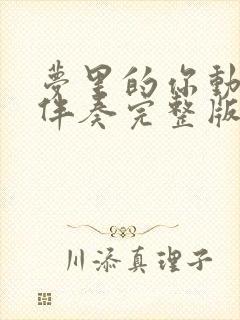 夢里的你動
伴奏完整版
川添真理子